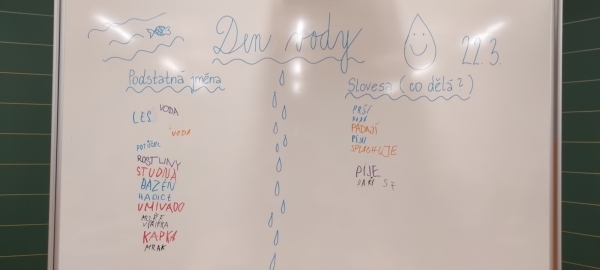 Den vody
22.3.
Podstatná jména
LES
VODA
VODA
POTŮČEK
ROSTLINY
STUDNA
BAZÉN
HADICE
UMIVADO
MOŘE
KAPKA
MRAK
Slovesa (co dělá?)
PRŠÍ
PADAJÍ
SPLACHUJE
PIJE
VAŘÍ SE